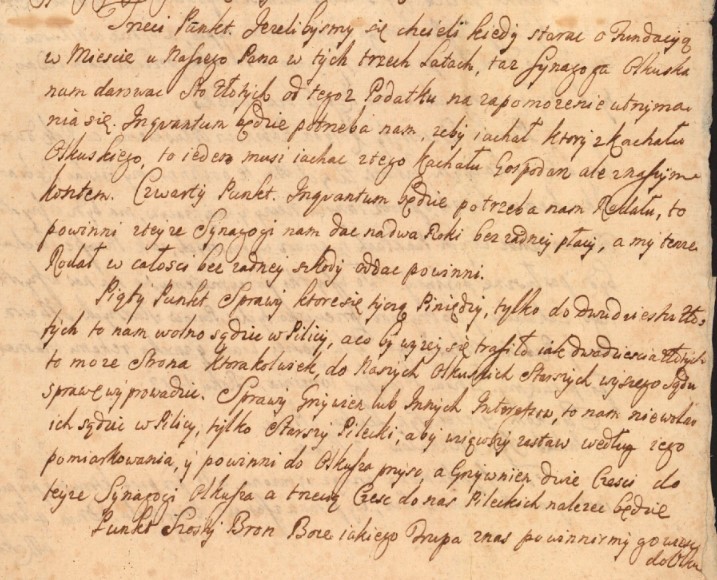 Trzeci Punkt. Jezelibysmy się chcieli kiedy starac o Fundacyą
w Miescie u Naszego Pana w tych trzech Latach, taz Synagoga Olkuska
nam darowac Sto Złotych od tegoz Podatku na zapomozenie utrzyma-
nia się. Inqvantum będzie potrzeba nam, zeby iachał ktory z Kachału
Olkuskiego, to ieden musi iachac z tego Kachału Gospodarz ale z naszym
kosztem. Czwarty Punkt. Inqvantum będzie potrzeba nam Rodału, to
powinni z teyze Synagogi nam dac na dwa Roki bez zadney płacy, a my tenze
Rodał w całosci bez zadney szkody oddac powinni.
Piąty Punkt Sprawy ktore się tyczą Piniędzy, tylko do dwudziestu Zło-
tych to nam wolno sądzic w Pilicy, a co by wyzey się trafiło iak dwadziescia Złotych
to moze Strona ktorakolwiek, do Naszych Olkuskich Starszych wyszego sądu
sprawę wyprowadzic. Sprawy Grzywien lub Innych Interessow, to nam nie wolno
ich sądzic w Pilicy, tylko Starszy Pilecki, aby wziąwszy zastaw według iego
pomiarkowania, y powinni do Olkusza przysc, a Grzywnien dwie Częsci do
teyze Synagogi Olkusza a trzecią Częsc do nas Pileckich nalezec będzie
Punkt Szosty Bron Boze iakiego Trupa z nas powinnismy go wiesc
do Olku